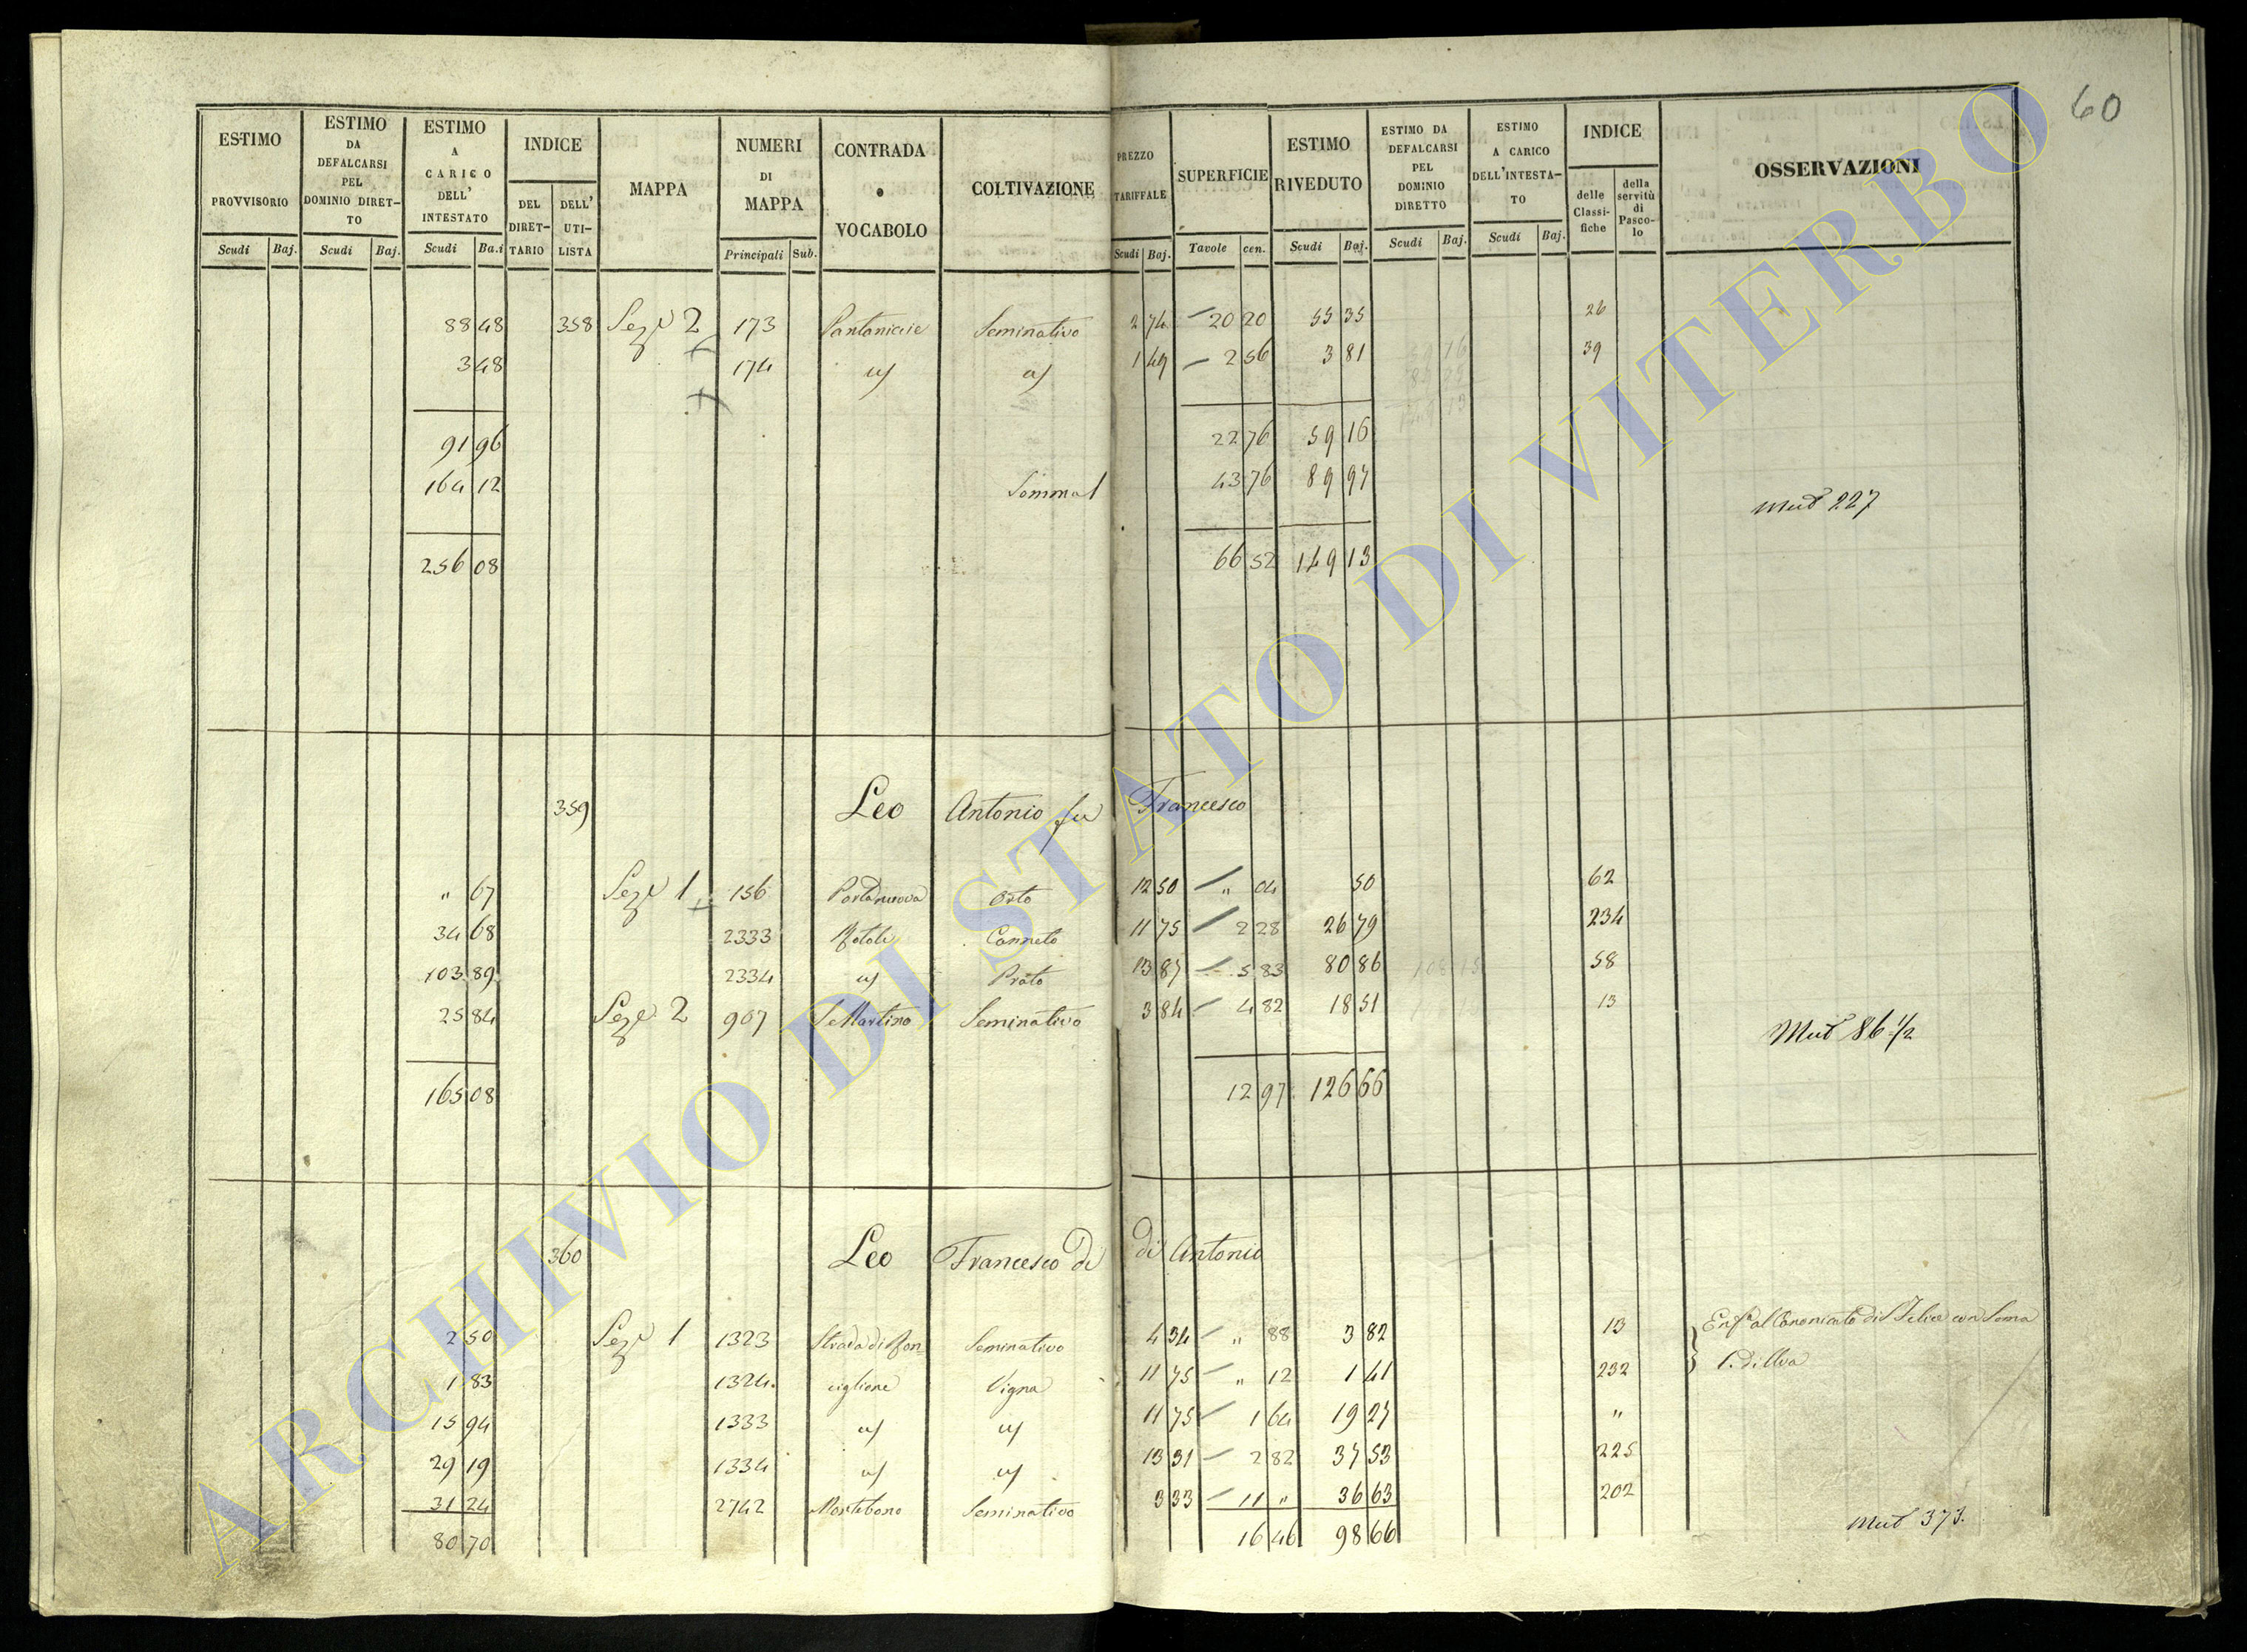 60
ESTIMO PROVVISORIO Scudi Baj.
ESTIMO DA DEFALCARSI PEL DOMINIO DIRET- TO Scudi Baj.
ESTIMO A CARICO DELL' INTESTATO Scudi Ba.i
INDICE DEL DIRET- TARIO DELL' UTI- LISTA
MAPPA
NUMERI DI MAPPA Principali Sub.
CONTRADA o VOCABOLO
COLTIVAZIONE
PREZZO TARIFFALE Scudi Baj.
SUPERFICIE Tavole cen.
ESTIMO RIVEDUTO Scudi Baj.
ESTIMO DA DEFALCARSI PEL DOMINIO DIRETTO Scudi Baj.
ESTIMO A CARICO DELL'INTESTA- TO Scudi Baj.
INDICE delle Classi- fiche della servitù di Pasco- lo
OSSERVAZIONI
88 48 358 Seze 2 173 Seminativo 2 74 20 20 55 35 26
3 48 174 1 49 2 56 3 81 39
91 96 22 76 59 16
164 12 Somma 43 76 89 97
Mut 227
256 08 66 52 149 13
359 Leo Antonio fu Francesco
" 67 Seze 1 156 Portanuova Orto 12 50 " 04 50 62
34 68 2333 Canneto 11 75 2 28 26 79 234
103 89 2334 Prato 13 87 5 83 80 86 58
25 84 Seze 2 907 S. Martino Seminativo 3 84 4 82 18 51 13
Mut 86 1/2
165 08 12 97 126 66
360 Leo Francesco di di Antonio
2 50 Seze 1 1323 Strada di Ron= Seminativo 4 34 " 88 3 82 13 al Canonicato di S. Felice
1 83 1324 ciglione Vigna 11 75 " 12 1 41 232
15 94 1333 11 75 1 64 19 27 "
29 19 1334 13 31 2 82 37 53 225
31 24 2742 Montebono Seminativo 3 33 11 " 36 63 202
80 70 16 46 98 66
Mut 373.
ARCHIVIO DI STATO DI VITERBO